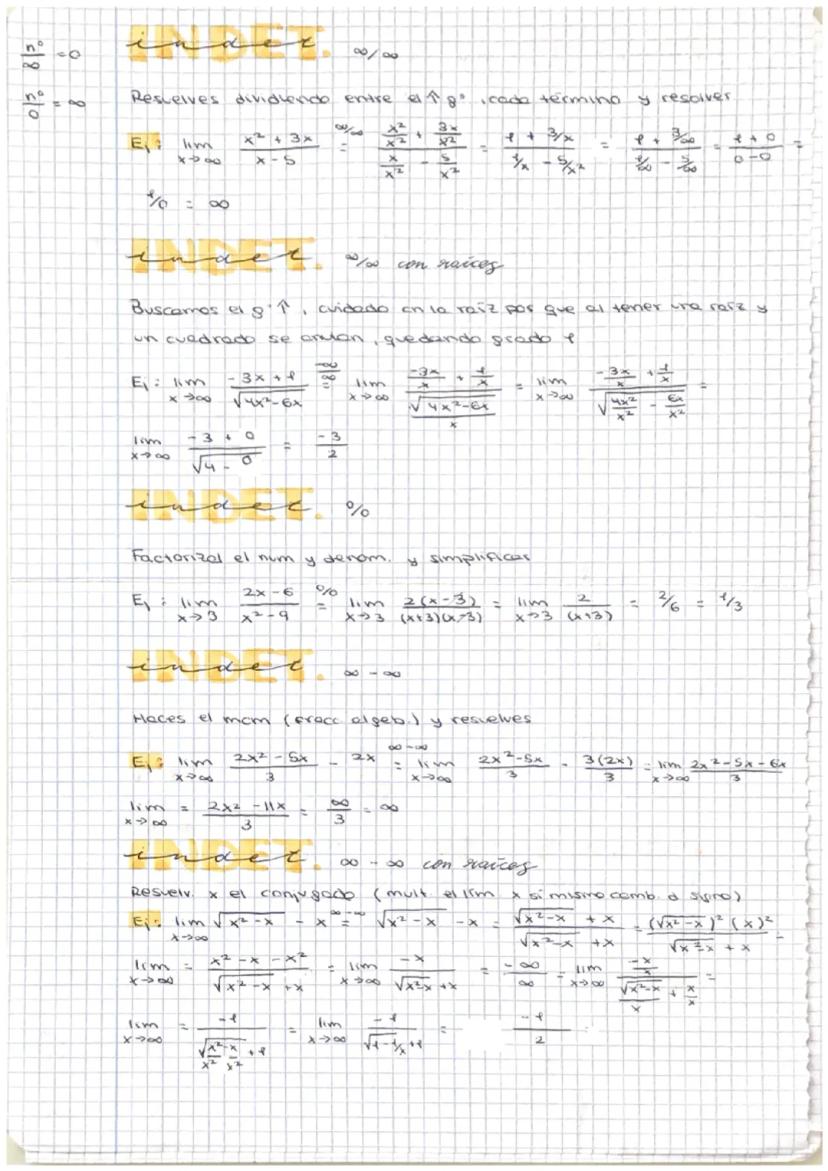 nº/∞ = 0
nº/0 = ∞
indet. INDET. ∞/∞
Resuelves dividiendo entre el ↑ gº, cada término y resolver
Ej: lim x→∞ (x² + 3x)/(x - 5) =^(∞/∞) (x²/x² + 3x/x²)/(x/x² - 5/x²) = (1 + 3/x)/(1/x - 5/x²) = (1 + 3/∞)/(1/∞ - 5/∞) = (1 + 0)/(0 - 0) =
1/0 = ∞
indet. INDET. ∞/∞ con raíces
Buscamos el gº↑, cuidado en la raíz por que al tener una raíz y
un cuadrado se anulan, quedando grado 1
Ej: lim x→∞ (-3x + 1)/√(4x²-6x) =^(-∞/∞) lim x→∞ (-3x/x + 1/x)/(√(4x²-6x)/x) = lim x→∞ (-3x/x + 1/x)/√(4x²/x² - 6x/x²) =
lim x→∞ (-3 + 0)/√(4 - 0) = -3/2
indet. INDET. 0/0
Factorizas el num y denom. y simplificas
Ej: lim x→3 (2x - 6)/(x² - 9) =^(0/0) lim x→3 2(x-3)/((x+3)(x-3)) = lim x→3 2/(x+3) = 2/6 = 1/3
indet. INDET. ∞ - ∞
Haces el mcm (fracc. algeb.) y resuelves
Ej: lim x→∞ (2x² - 5x)/3 - 2x =^(∞-∞) lim x→∞ (2x²-5x)/3 - 3(2x)/3 = lim x→∞ (2x² - 5x - 6x)/3
lim x→∞ = (2x² - 11x)/3 = ∞/3 = ∞
indet. INDET. ∞ - ∞ con raíces
Resuelv. x el conjugado (mult. el lim x si mismo camb. d signo)
Ej: lim x→∞ √(x² - x) - x =^(∞-∞) √(x² - x) - x = (√(x²-x) + x)/(√(x²-x) + x) = ((√(x²-x))² (x)²)/(√(x²-x) + x) =
lim x→∞ = (x² - x - x²)/(√(x² - x) + x) = lim x→∞ -x/(√(x²-x) + x) = -∞/∞ = lim x→∞ (-x/x)/(√(x²-x)/x + x/x) =
lim x→∞ = -1/(√(x²/x² - x/x²) + 1) = lim x→∞ -1/(√(1 - 1/x) + 1) = -1/2